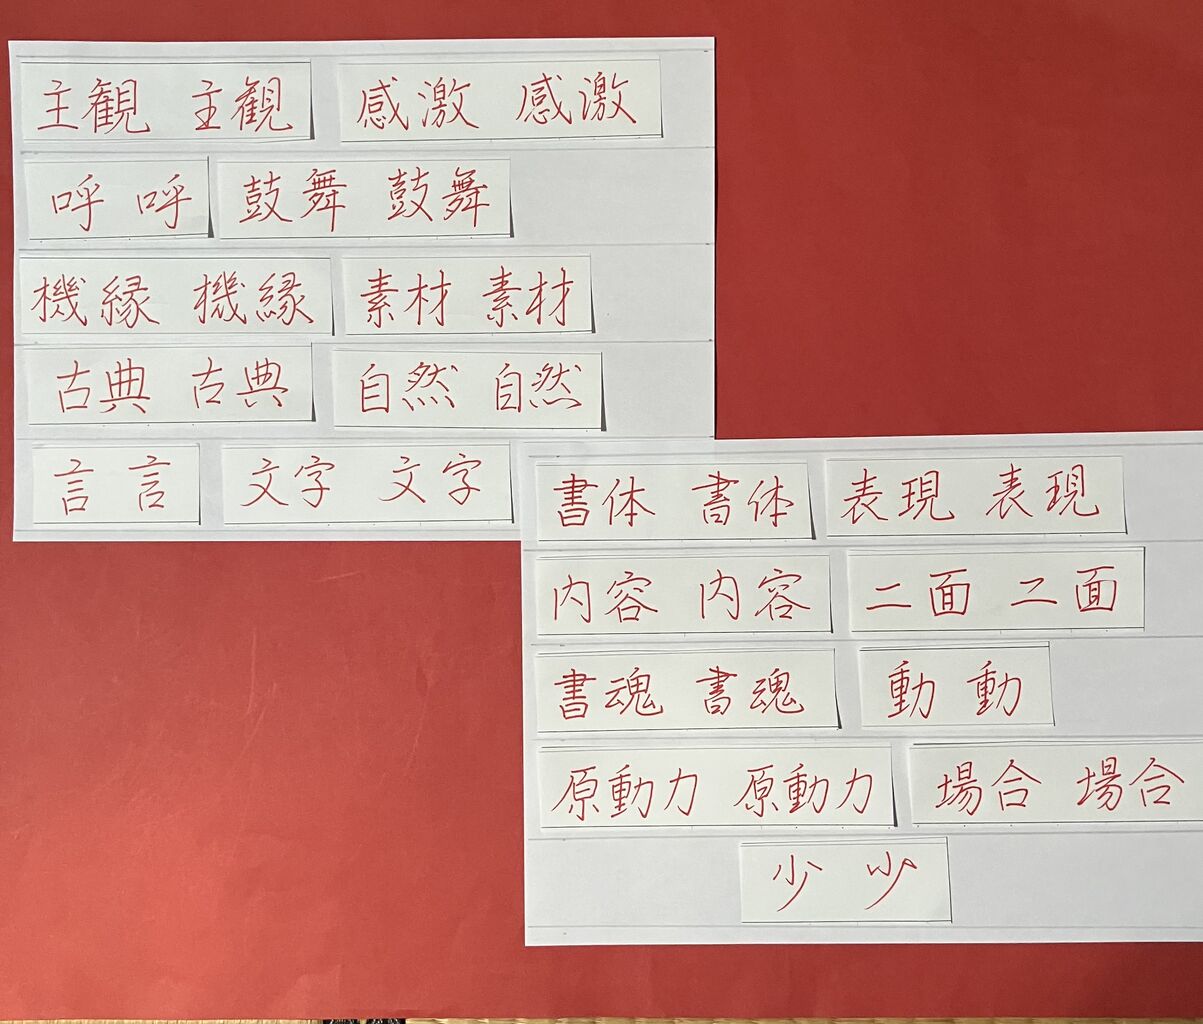 主観 主観 感激 感激
呼 呼 鼓舞 鼓舞
機縁 機縁 素材 素材
古典 古典 自然 自然
言 言 文字 文字
書体 書体 表現 表現
内容 内容 二面 二面
書魂 書魂 動 動
原動力 原動力 場合 場合
少 少